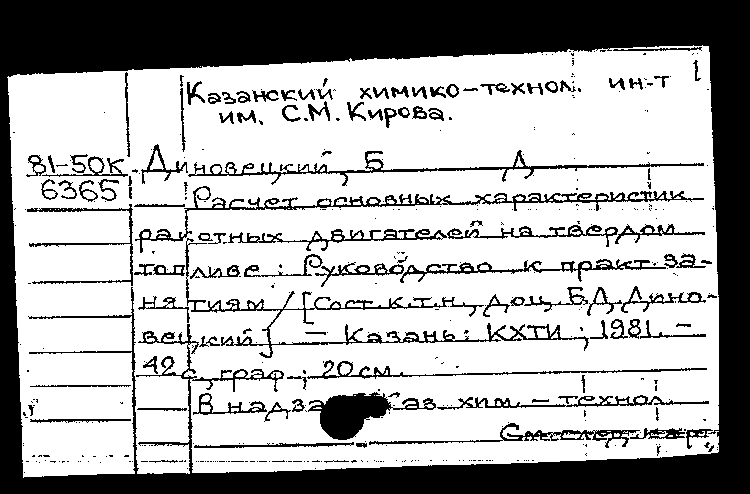 Казанский химико-технол. ин-т 1
им. С.М. Кирова.
81-50к Диновецкий, Б Д
6365
Расчет основных характеристик
ракетных двигателей на твердом
топливе: Руководство к практ. за-
нятиям / [Сост. к.т.н., доц. Б.Д. Дино-
вецкий]. – Казань: КХТИ, 1981. –
42 с., граф.; 20 см.
В надзаг. Каз. хим. – технол.
См. след. карт.